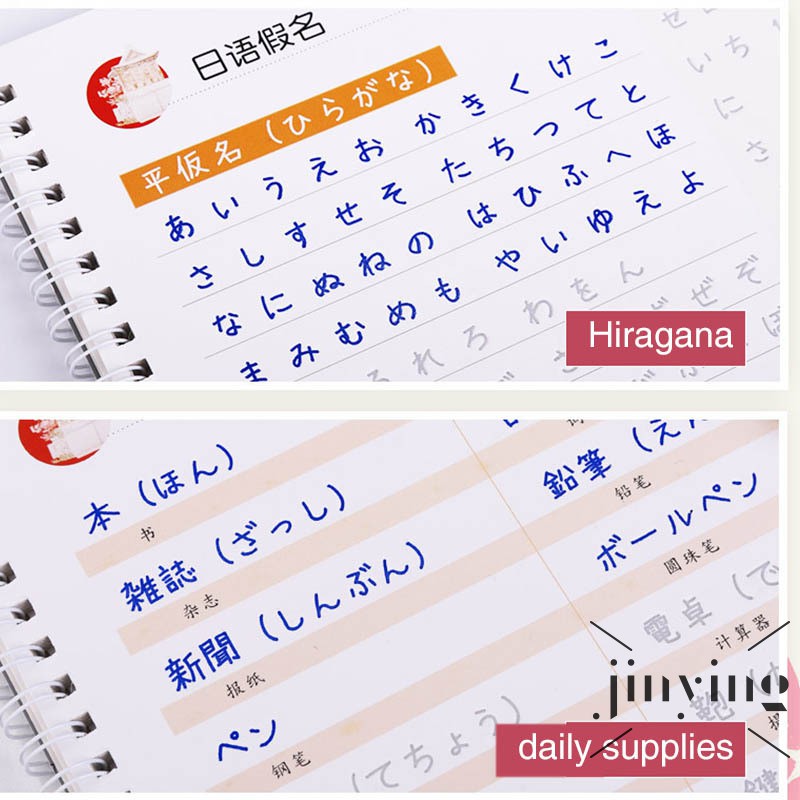 日语假名
平仮名（ひらがな）
あ い う え お か き く け こ
さ し す せ そ た ち つ て と
な に ぬ ね の は ひ ふ へ ほ
ま み む め も や い ゆ え よ
る れ ろ わ を ん
ぜ ぞ
いち
に
さ
Hiragana
本（ほん）
书
雑誌（ざっし）
杂志
新聞（しんぶん）
报纸
ペン
钢笔
（てちょう）
鉛筆（えん
铅笔
ボールペン
圆珠笔
電卓（で
计算器
鞄
鍵
jinying
daily supplies